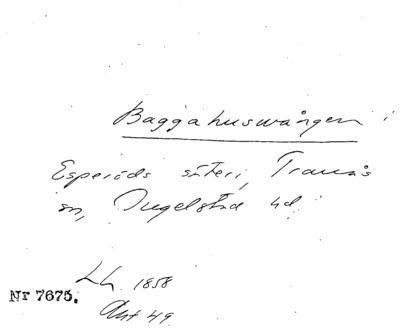 Baggahusvången i
Esperöds säteri, Tranås
sn, Ingelstad hd
LL. 1858
Akt 49
Nr 7675.